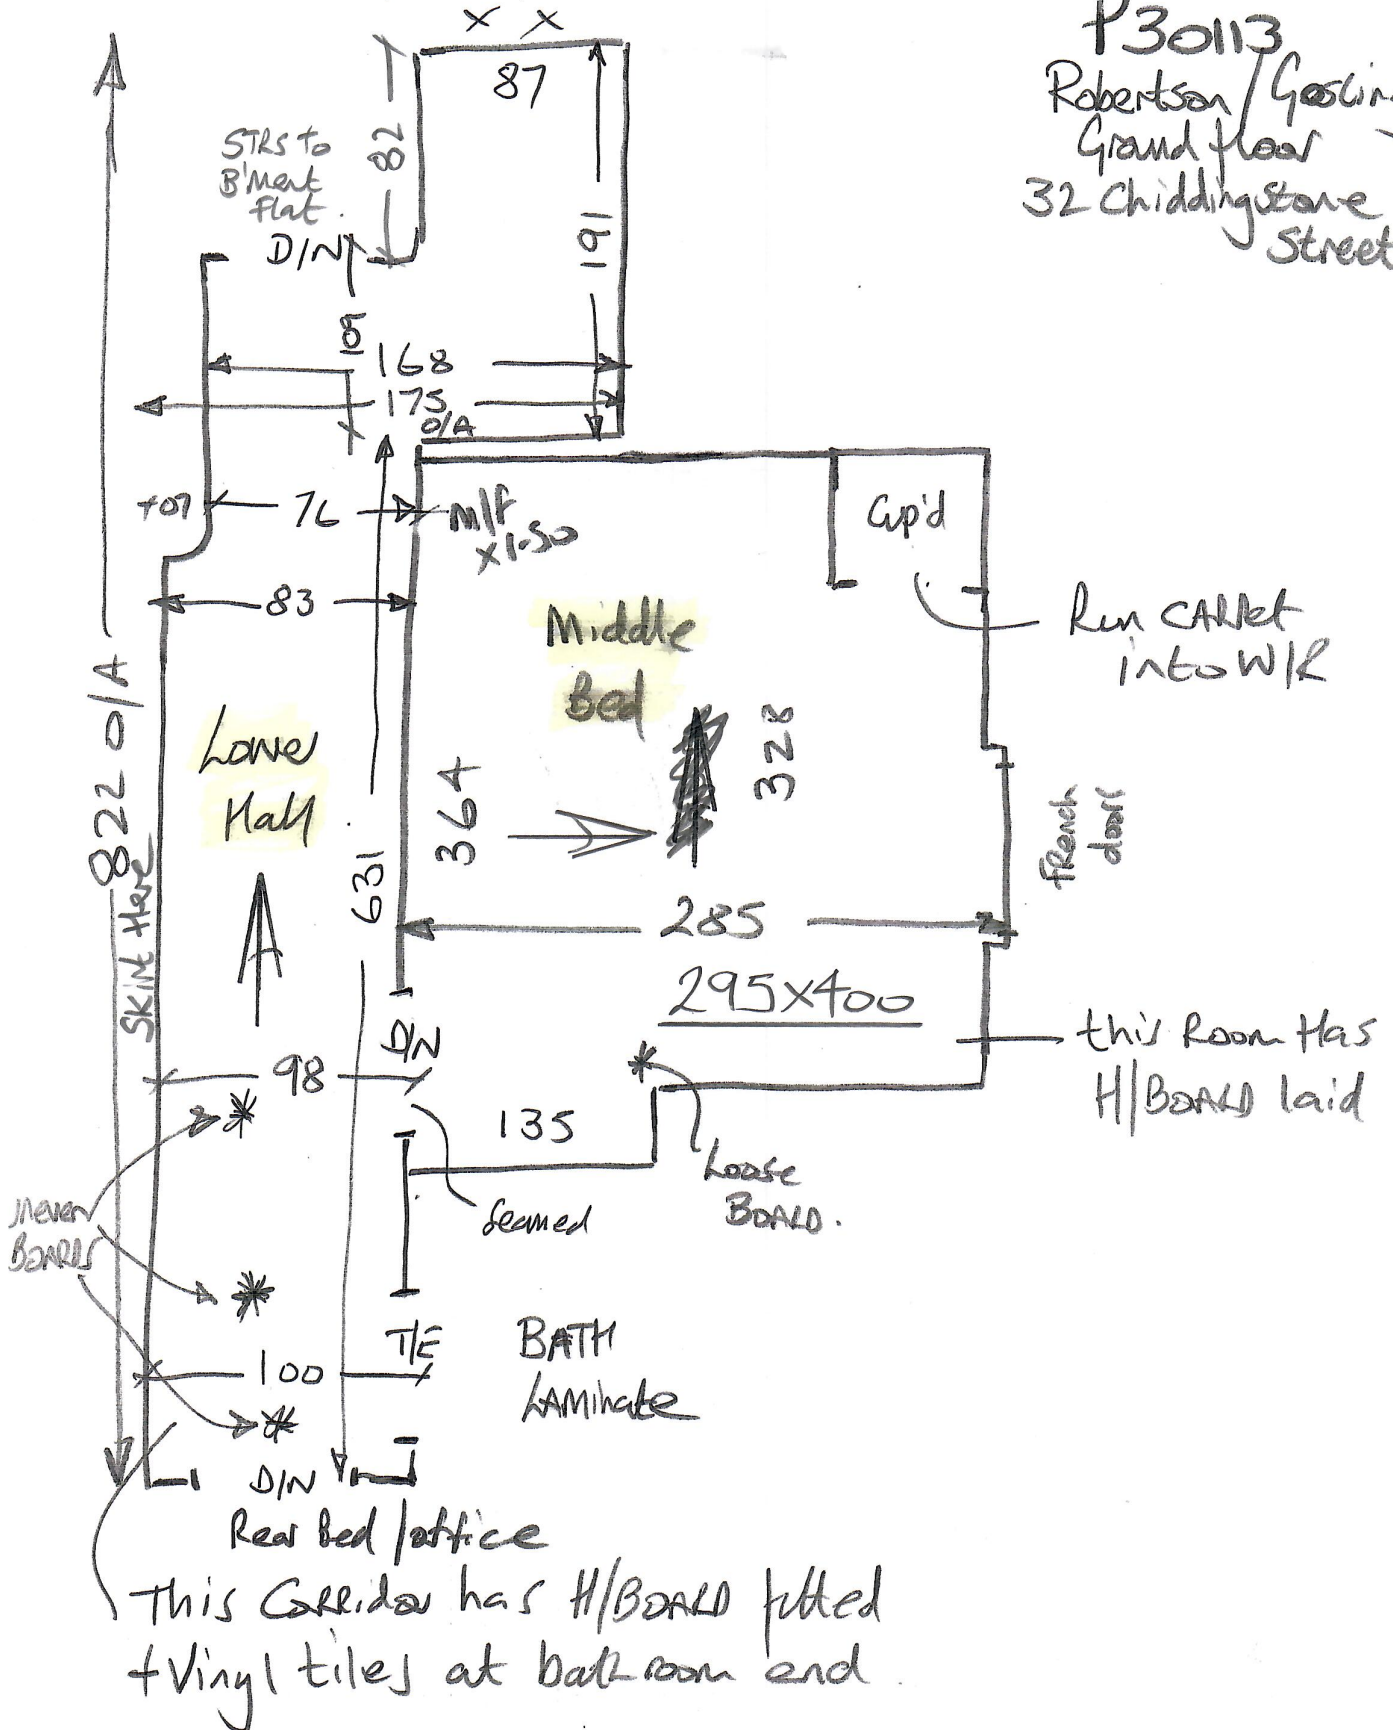 P30113
Robertson/Gosling
Ground floor
32 Chiddingstone
Street
X X
87
82
191
STRS to
B'Ment
Flat.
D/N
109
168
175
O/A
+07
76
M/F
X1-50
Cup'd
83
Run CARPet
into W/R
Middle
Bed
Lower
Hall
822 O/A
Skirt Here
631
364
328
French
doors
285
295X400
D/N
98
this Room Has
H/BOARD laid
135
Loose
BOARD.
Seamed
BOARDS
T/E
BATH
LAMinate
100
D/N
Rear Bed/office
This Corridor has H/BOARD fitted
+ Vinyl tiles at bathroom end.